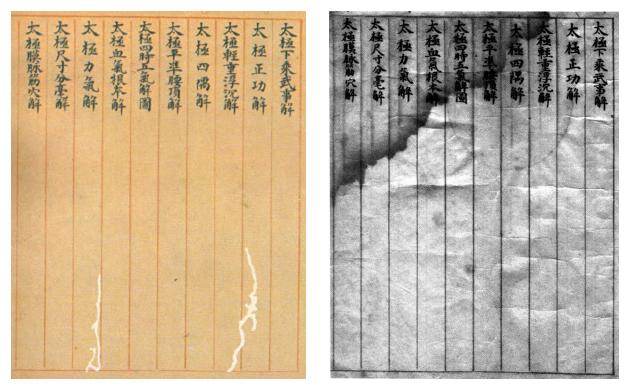 太極下乘武事解
太極正功解
太極輕重浮沉解
太極四隅解
太極平準腰頂解
太極四時五氣解圖
太極血氣根本解
太極力氣解
太極尺寸分毫解
太極膜脉筋穴解
太極下乘武事解
太極正功解
太極輕重浮沉解
太極四隅解
太極平準腰頂解
太極四時五氣解圖
太極血氣根本解
太極力氣解
太極尺寸分毛解
太極膜脉筋穴解